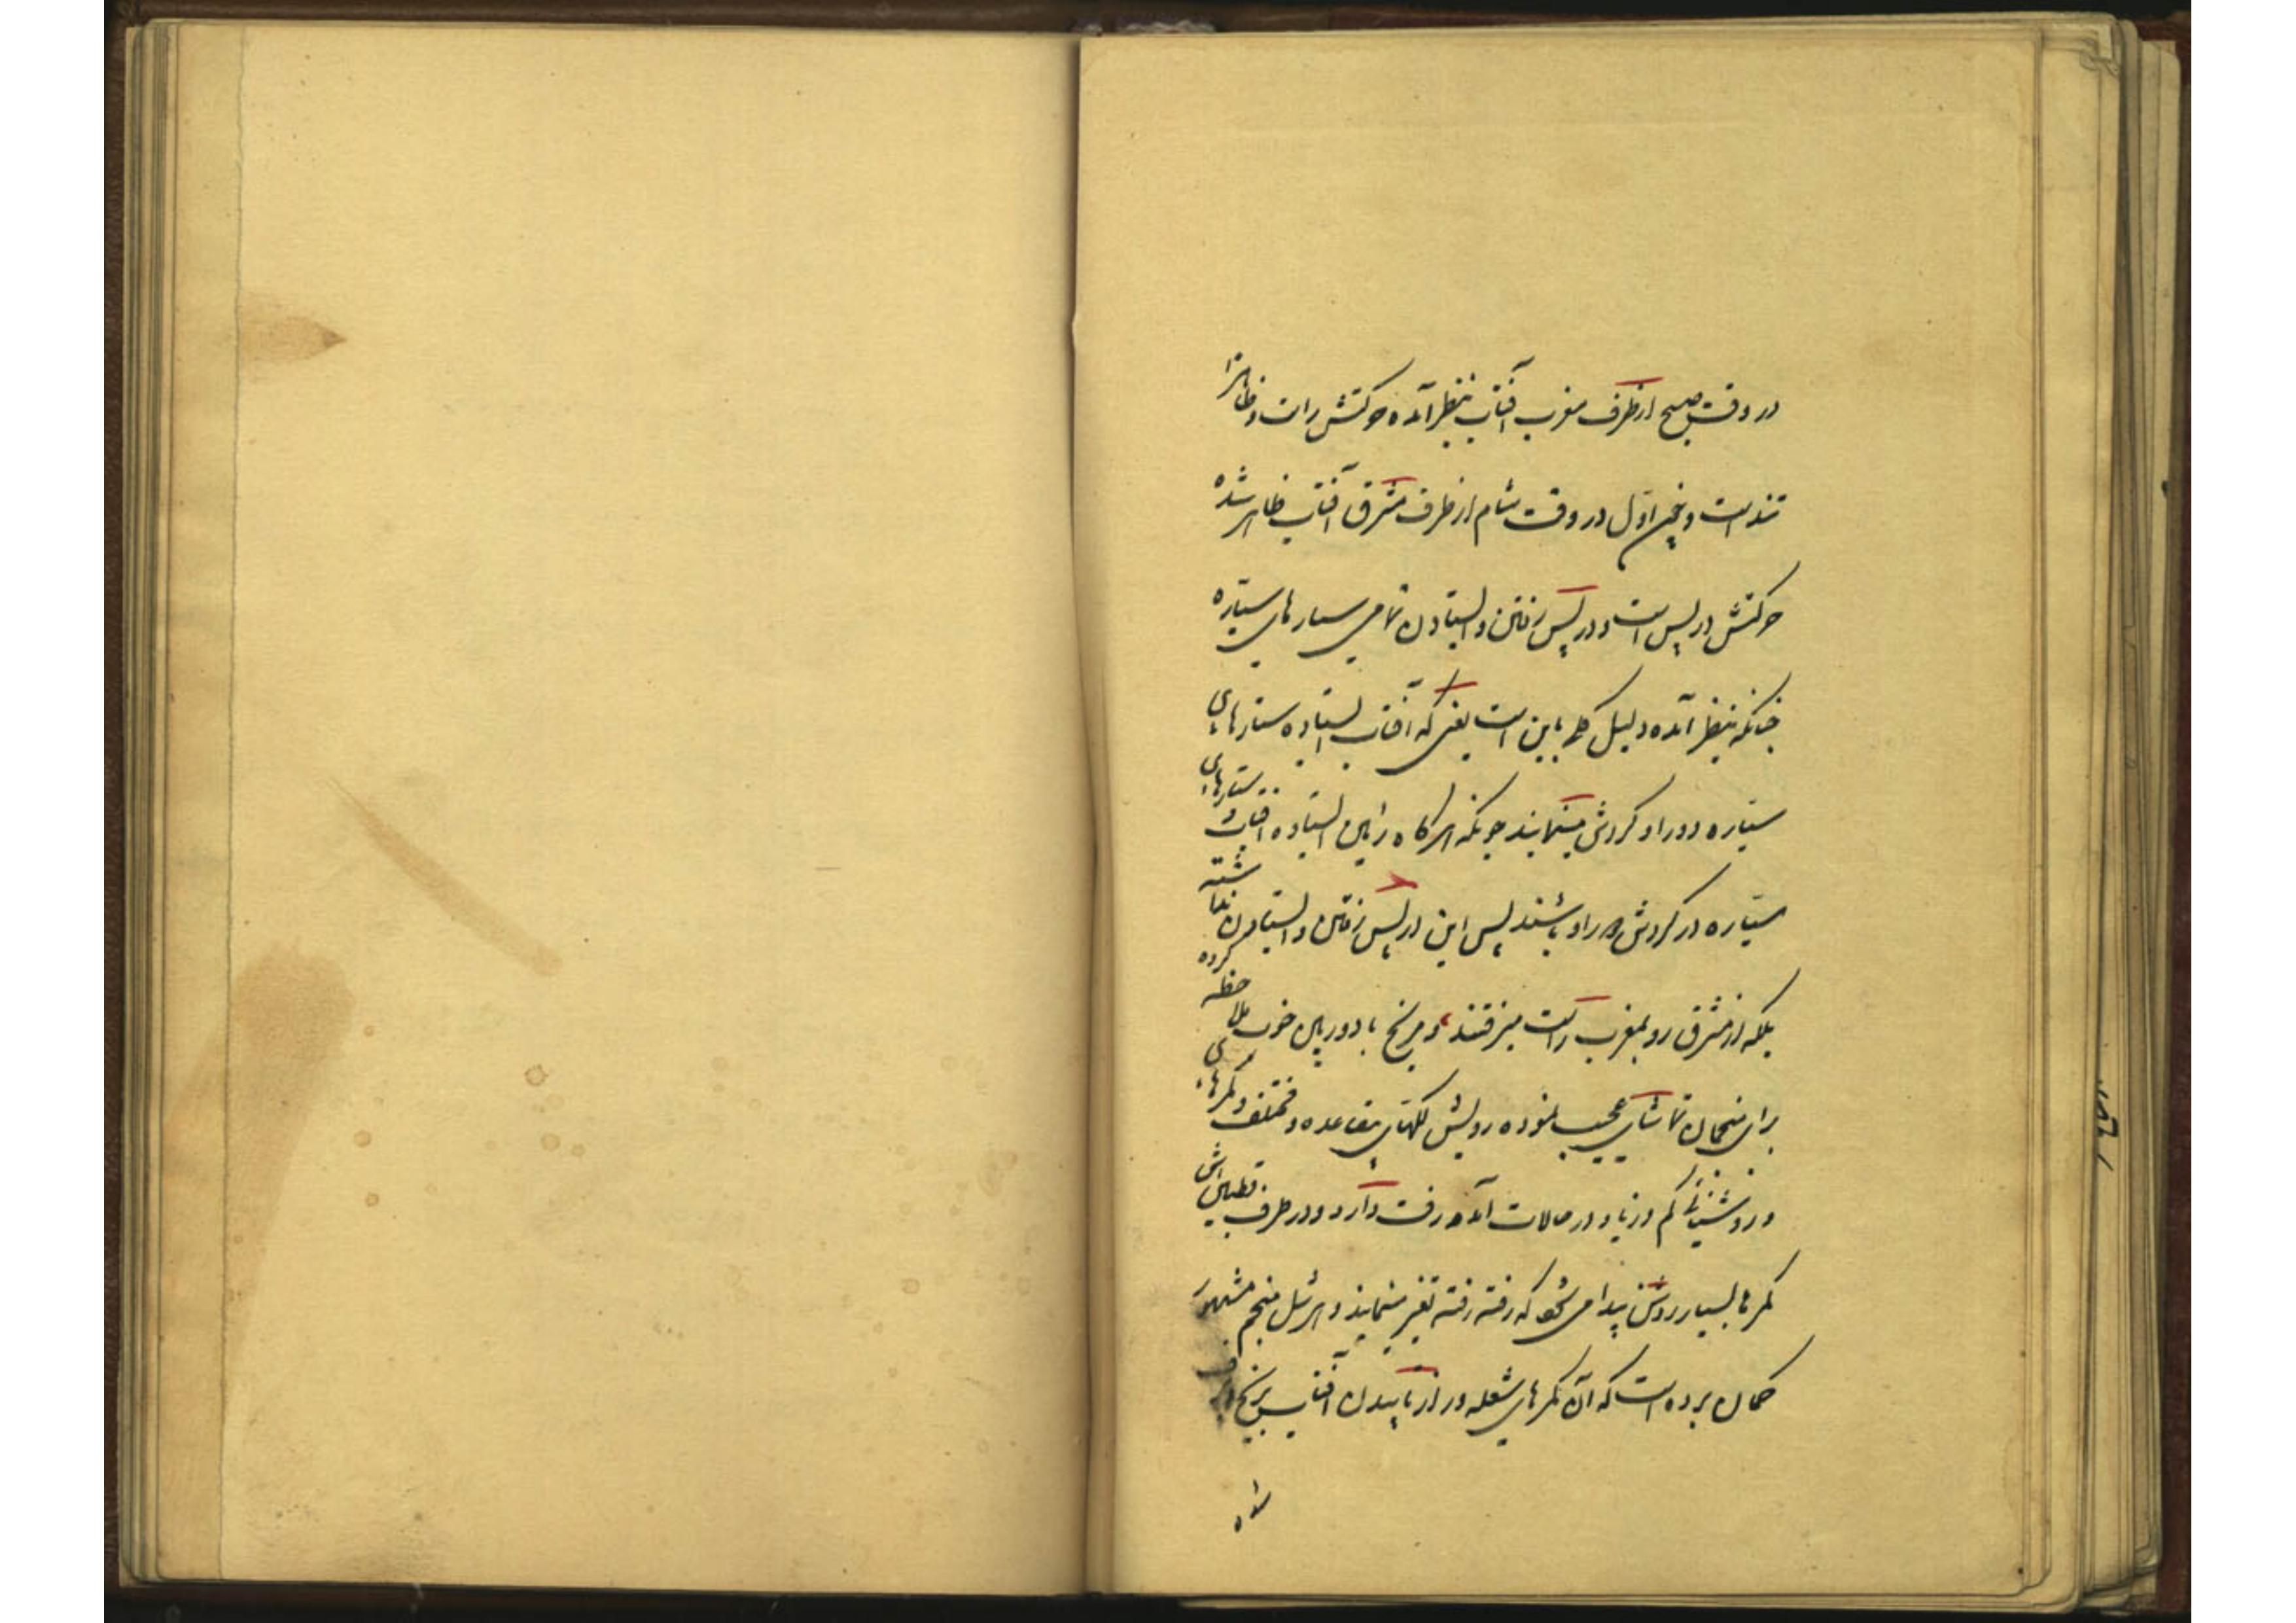 در وقت صبح از طرف مغرب آفتاب بنظر آمده حرکتش راست و ظاهرا
تند است و چون اول در وقت شام از طرف مشرق آفتاب ظاهر شده
حرکتش در پس است و در پس رفتن و ایستادن تمامی ستارهای سیّاره
چنانکه بنظر آمده دلیل کلی باین است یعنی که آفتاب ایستاده ستارهای
سیّاره دور او گردش مینمایند چونکه هرگاه زمین ایستاده آفتاب و ستارهای
سیّاره در گردش دور او باشند پس این در پس رفتن و ایستادن نداشته
بلکه از مشرق رو بمغرب راست میرفتند و مریخ با دوربین خوب ملاحظه کرده
برای منجمان تماشای عجیب نموده رویش لکهای متعدده و مختلف و کمرهای
و روشنیائی کم و زیاد در حالات آمد و رفت دارد و در طرف قطبین اش
کمرها بسیار روشن پیدا می شود که رفته رفته تغیر مینمایند و هرشل منجم مشهور
گمان برده است که آن کمرهای شعله ور از تابیدن آفتاب بر یخ و برف